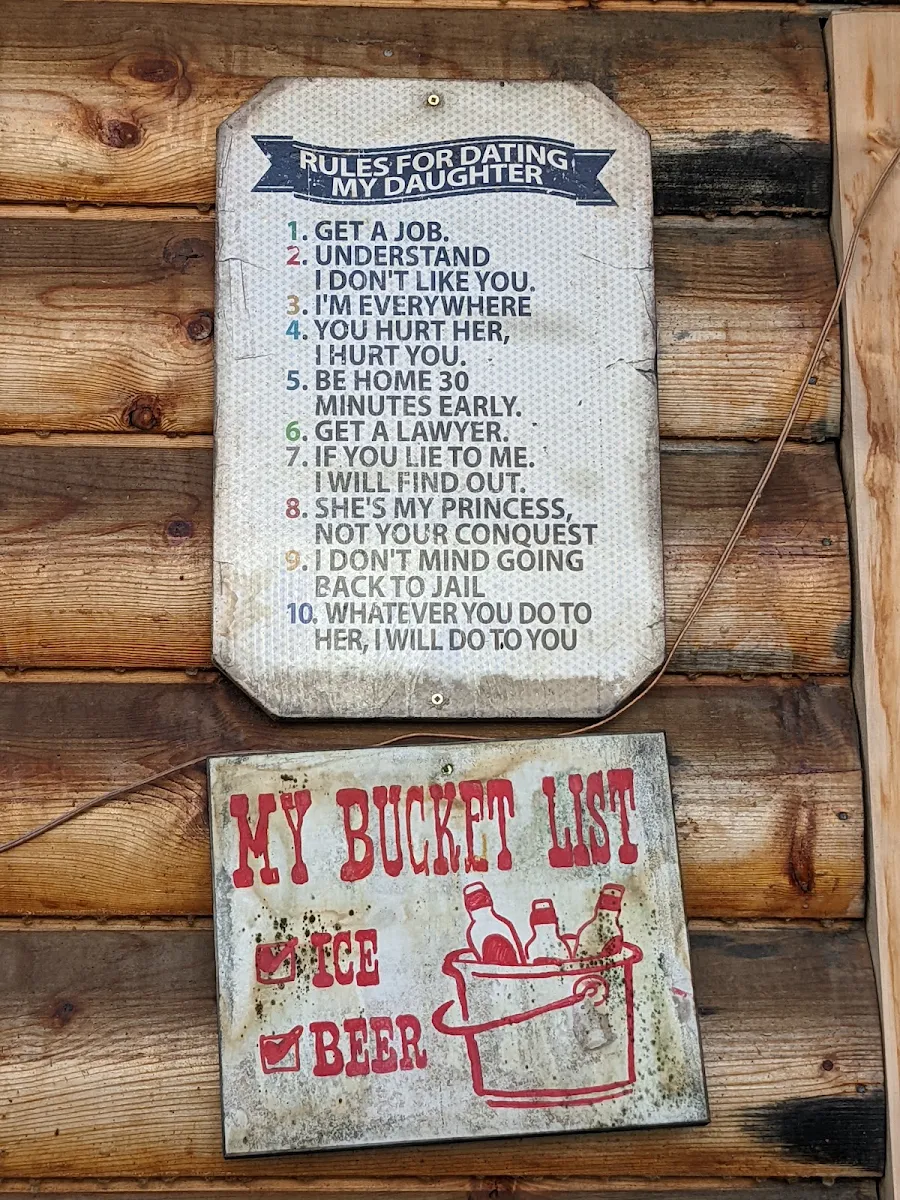 RULES FOR DATING
MY DAUGHTER
1. GET A JOB.
2. UNDERSTAND
I DON'T LIKE YOU.
3. I'M EVERYWHERE
4. YOU HURT HER,
I HURT YOU.
5. BE HOME 30
MINUTES EARLY.
6. GET A LAWYER.
7. IF YOU LIE TO ME.
I WILL FIND OUT.
8. SHE'S MY PRINCESS,
NOT YOUR CONQUEST
9. I DON'T MIND GOING
BACK TO JAIL
10. WHATEVER YOU DO TO
HER, I WILL DO TO YOU
MY BUCKET LIST
ICE
BEER